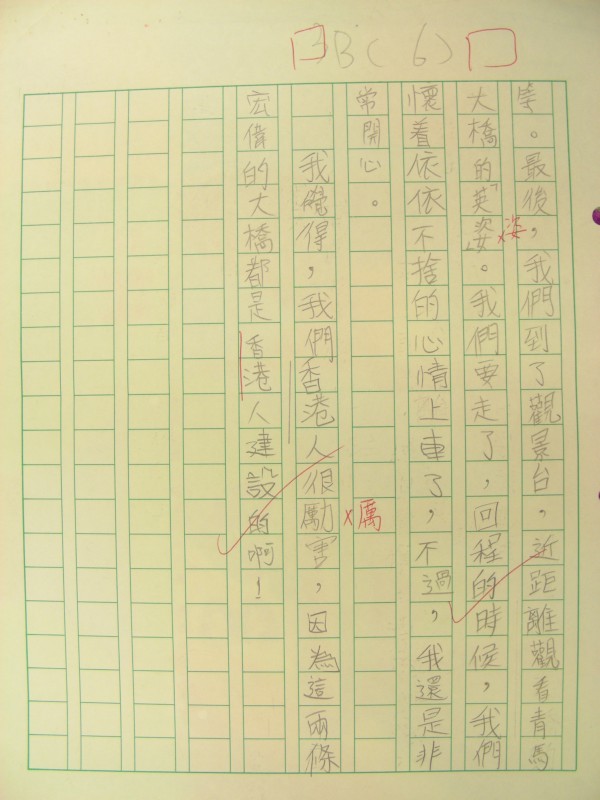 3B(6)
等。最後，我們到了觀景台，近距離觀看青馬
大橋的英姿。我們要走了，回程的時候，我們
姿
懷着依依不捨的心情上車了，不過，我還是非
常開心。
我覺得，我們香港人很勵害，因為這兩條
厲
宏偉的大橋都是香港人建設的啊！